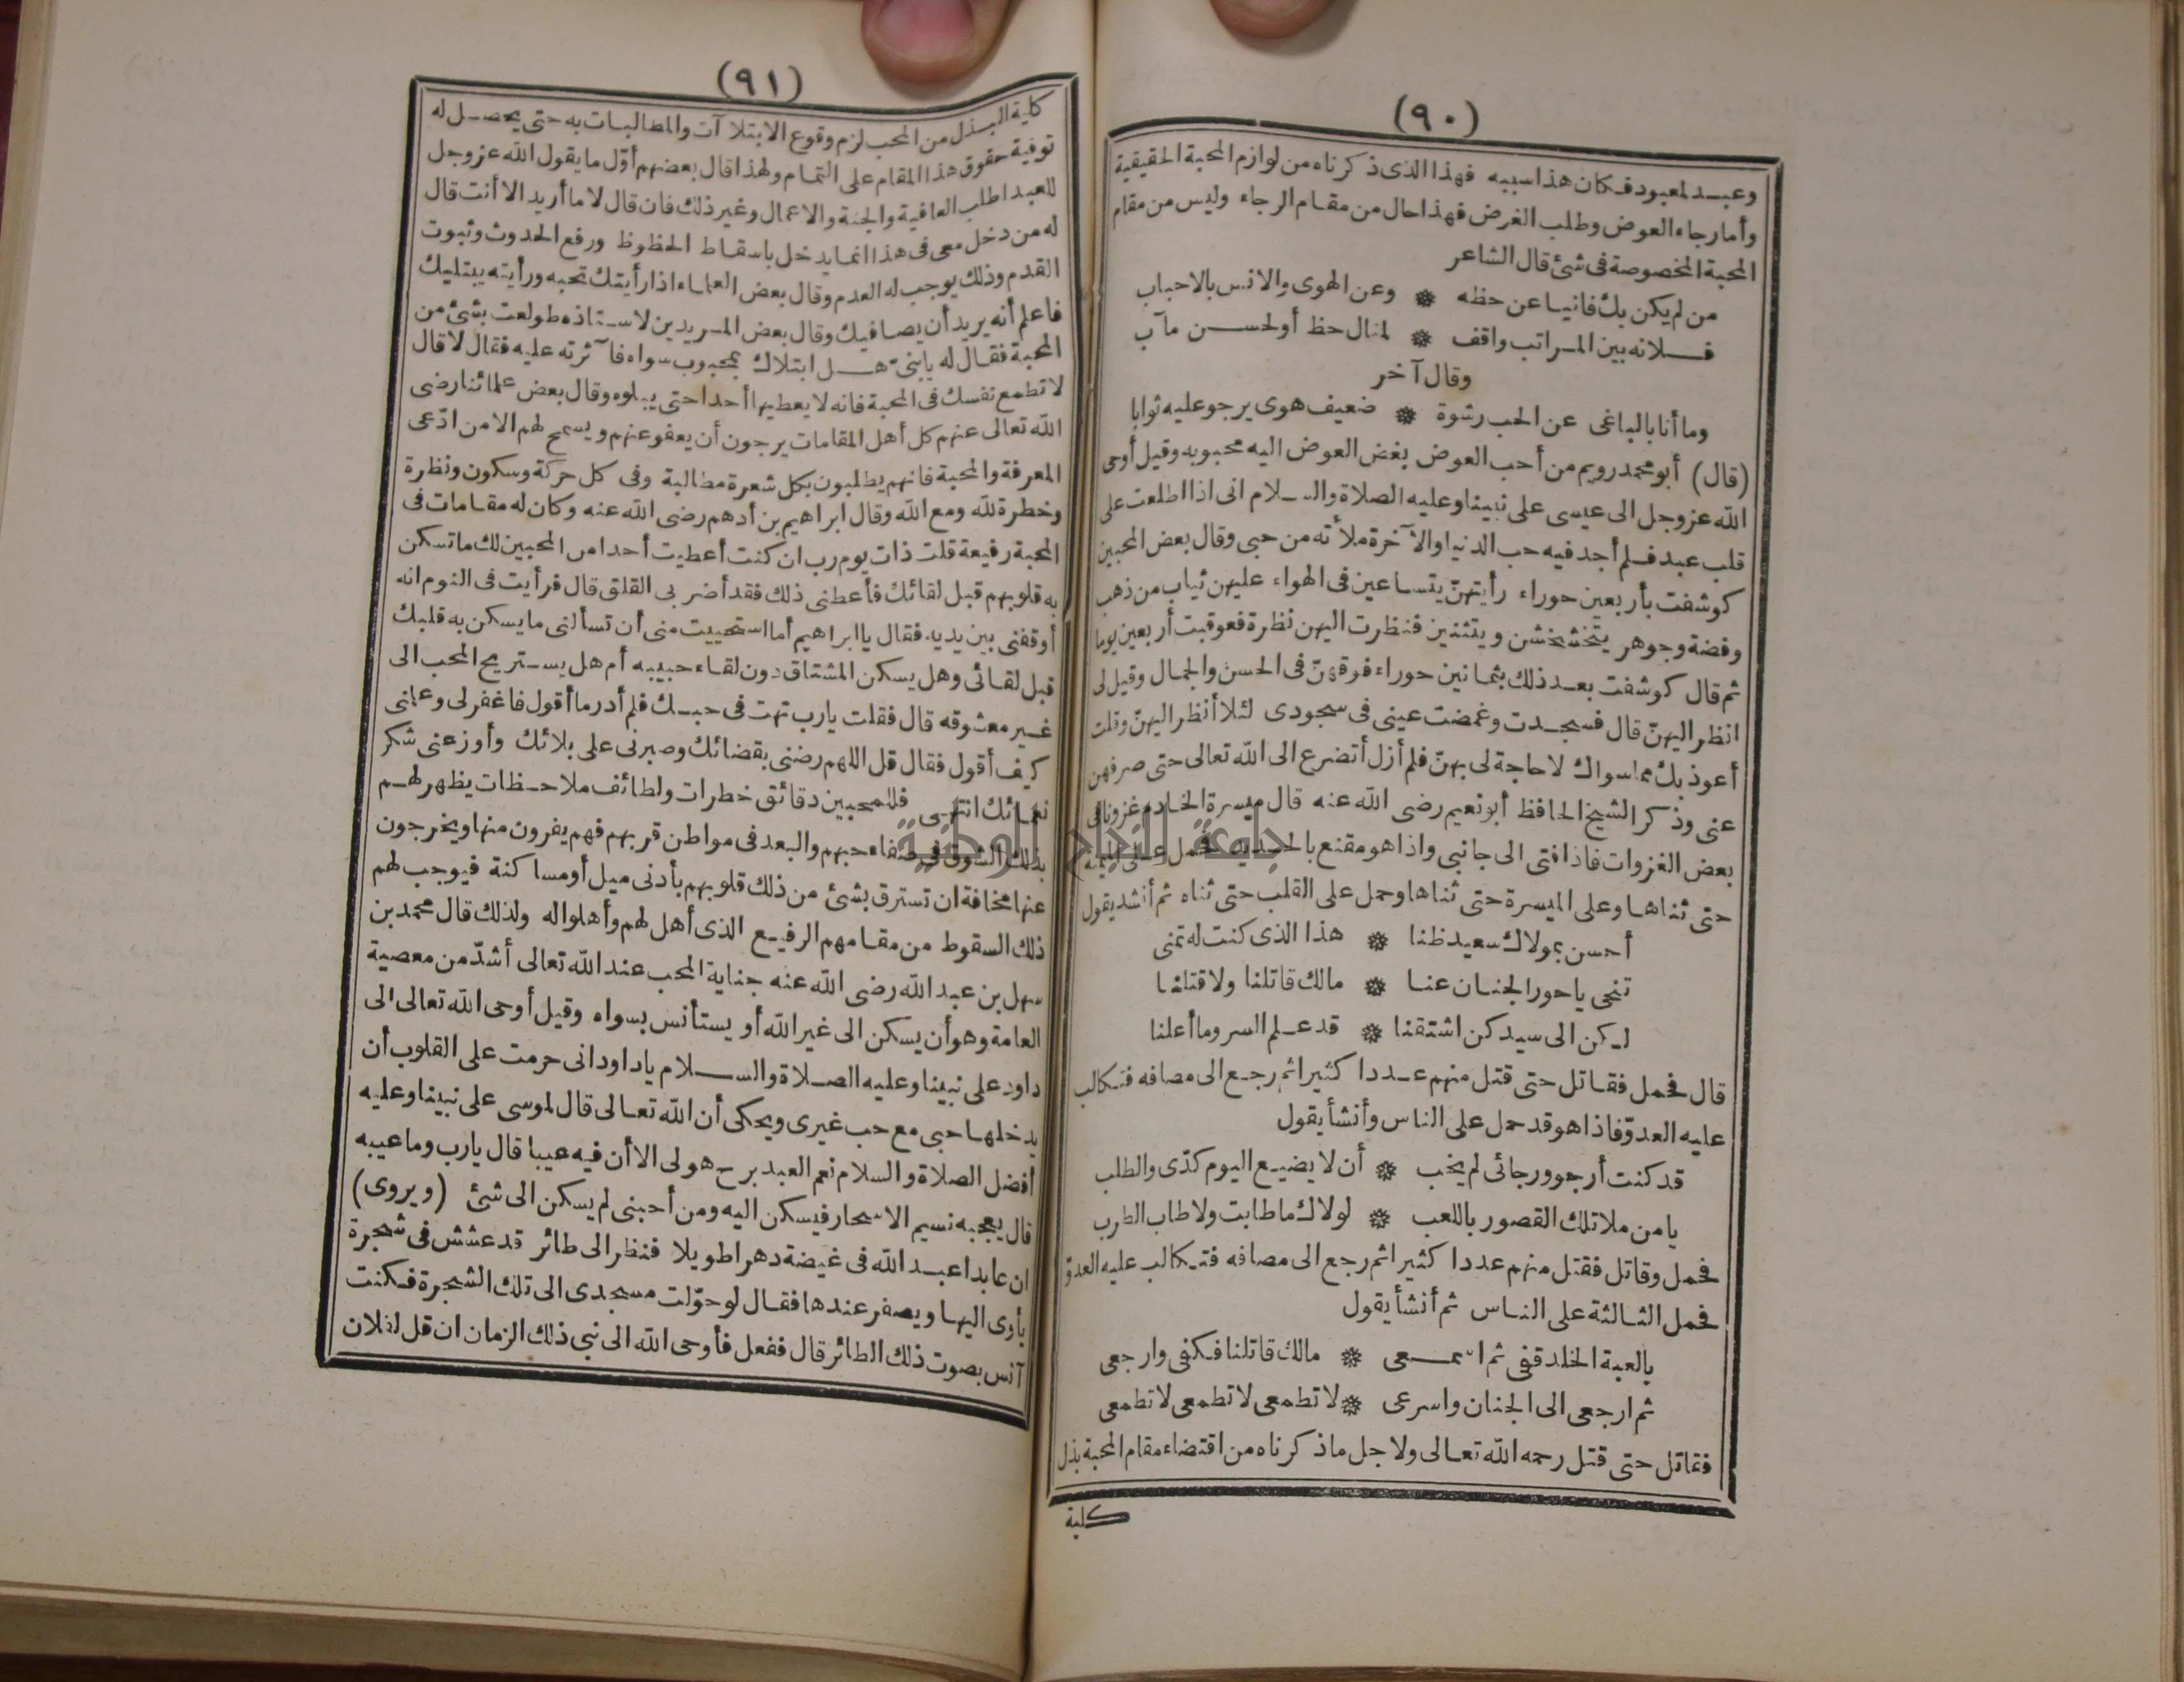 (٩٠)
وعبد لمعبود فكان هذا سببه فهذا الذى ذكرناه من لوازم المحبة الحقيقية
وأما رجاء العوض وطلب الغرض فهذا حال من مقام الرجاء وليس من مقام
المحبة المخصوصة فى شئ قال الشاعر
من لم يكن بك فانيا عن حظه * وعن الهوى والانس بالاحباب
فلانه بين المراتب واقف * لمنال حظ أو لحسن مآب
وقال آخر
وما أنا بالباغى عن الحب رشوة * ضعيف هوى يرجو عليه ثوابا
(قال) أبو محمد رويم من أحب العوض بغض العوض اليه محبوبه وقيل أوحى
الله عز وجل الى عيسى على نبينا وعليه الصلاة والسلام انى اذا اطلعت على
قلب عبد فلم أجد فيه حب الدنيا والآخرة ملأته من حبى وقال بعض المحبين
كوشفت بأربعين حوراء رأيتهنّ يتساعين فى الهواء عليهن ثياب من ذهب
وفضة وجوهر يتخشخشن ويتثنين فنظرت اليهن نظرة فعوقبت أربعين يوما
ثم قال كوشفت بعد ذلك بثمانين حوراء فوقهنّ فى الحسن والجمال وقيل لى
انظر اليهنّ قال فسجدت وغمضت عينى فى سجودى لئلا أنظر اليهنّ وقلت
أعوذ بك مما سواك لا حاجة لى بهنّ فلم أزل أتضرع الى الله تعالى حتى صرفهن
عنى وذكر الشيخ الحافظ أبو نعيم رضى الله عنه قال ميسرة الخادم غزونا فى
بعض الغزوات فاذا فتى الى جانبى واذا هو مقنع بالحديد فحمل على الميمنة
حتى ثناها وعلى الميسرة حتى ثناها وحمل على القلب حتى ثناه ثم أنشد يقول
أحسن بمولاك سعيد ظنا * هذا الذى كنت له تمنى
تنحى يا حور الجنان عنا * مالك قاتلنا ولا قتلنا
لكن الى سيدكن اشتقنا * قد علم السر وما أعلنا
قال فحمل فقاتل حتى قتل منهم عددا كثيرا ثم رجع الى مصافه فتكالب
عليه العدوّ فاذا هو قد حمل على الناس وأنشأ يقول
قد كنت أرجو ورجائى لم يخب * أن لا يضيع اليوم كدّى والطلب
يا من ملا تلك القصور باللعب * لولاك ما طابت ولا طاب الطرب
فحمل وقاتل فقتل منهم عددا كثيرا ثم رجع الى مصافه فتكالب عليه العدوّ
فحمل الثالثة على الناس ثم أنشأ يقول
يالعبة الخلد قفى ثم اسمعى * مالك قاتلنا فكفى وارجعى
ثم ارجعى الى الجنان واسرعى * لا تطمعى لا تطمعى لا تطمعى
فقاتل حتى قتل رحمه الله تعالى ولاجل ما ذكرناه من اقتضاء مقام المحبة بذل
كلية
(٩١)
كلية البذل من المحب لزم وقوع الابتلاآت والمطالبات به حتى يحصل له
توفية حقوق هذا المقام على التمام ولهذا قال بعضهم أوّل ما يقول الله عز وجل
للعبد اطلب العافية والجنة والاعمال وغير ذلك فان قال لا ما أريد الا أنت قال
له من دخل معى فى هذا انما يدخل باسقاط الحظوظ ورفع الحدوث وثبوت
القدم وذلك يوجب له العدم وقال بعض العلماء اذا رأيتك تحبه ورأيته يبتليك
فاعلم أنه يريد أن يصافيك وقال بعض المريدين لاستاذه طولعت بشئ من
المحبة فقال له يا بنىّ هل ابتلاك بمحبوب سواه فآثرته عليه فقال لا قال
لا تطمع نفسك فى المحبة فانه لا يعطيها أحدا حتى يبلوه وقال بعض علمائنا رضى
الله تعالى عنهم كل أهل المقامات يرجون أن يعفو عنهم ويسمح لهم الا من ادّعى
المعرفة والمحبة فانهم يطلبون بكل شعرة مطالبة وفى كل حركة وسكون ونظرة
وخطرة لله ومع الله وقال ابراهيم بن أدهم رضى الله عنه وكان له مقامات فى
المحبة رفيعة قلت ذات يوم رب ان كنت أعطيت أحدا من المحبين لك ما تسكن
به قلوبهم قبل لقائك فأعطنى ذلك فقد أضر بى القلق قال فرأيت فى النوم انه
أوقفنى بين يديه فقال يا ابراهيم أما استحييت منى أن تسألنى ما يسكن به قلبك
قبل لقائى وهل يسكن المشتاق دون لقاء حبيبه أم هل يستريح المحب الى
غير معشوقه قال فقلت يارب تهت فى حبك فلم أدر ما أقول فاغفر لى وعلمنى
كيف أقول فقال قل اللهم رضنى بقضائك وصبرنى على بلائك وأوزعنى شكر
نعمائك انتهى فللمحبين دقائق خطرات ولطائف ملاحظات يظهر لهم
بذلك الشوق فى صفاء حبهم والبعد فى مواطن قربهم فهم يفرون منها ويخرجون
عنها مخافة ان تسترق بشئ من ذلك قلوبهم بأدنى ميل أو مساكنة فيوجب لهم
ذلك السقوط من مقامهم الرفيع الذى أهل لهم وأهلوا له ولذلك قال محمد بن
سهل بن عبد الله رضى الله عنه جناية المحب عند الله تعالى أشدّ من معصية
العامة وهو أن يسكن الى غير الله أو يستأنس بسواه وقيل أوحى الله تعالى الى
داود على نبينا وعليه الصلاة والسلام يا داود انى حرمت على القلوب أن
يدخلها حبى مع حب غيرى ويحكى أن الله تعالى قال لموسى على نبينا وعليه
أفضل الصلاة والسلام نعم العبد برح هو لى الا أن فيه عيبا قال يارب وما عيبه
قال يعجبه نسيم الاسحار فيسكن اليه ومن أحبنى لم يسكن الى شئ (ويروى)
ان عابدا عبد الله فى غيضة دهرا طويلا فنظر الى طائر قد عشش فى شجرة
يأوى اليها ويصفر عندها فقال لو حوّلت مسجدى الى تلك الشجرة فكنت
آنس بصوت ذلك الطائر قال ففعل فأوحى الله الى نبى ذلك الزمان ان قل لفلان
جامعة النجاح الوطنية